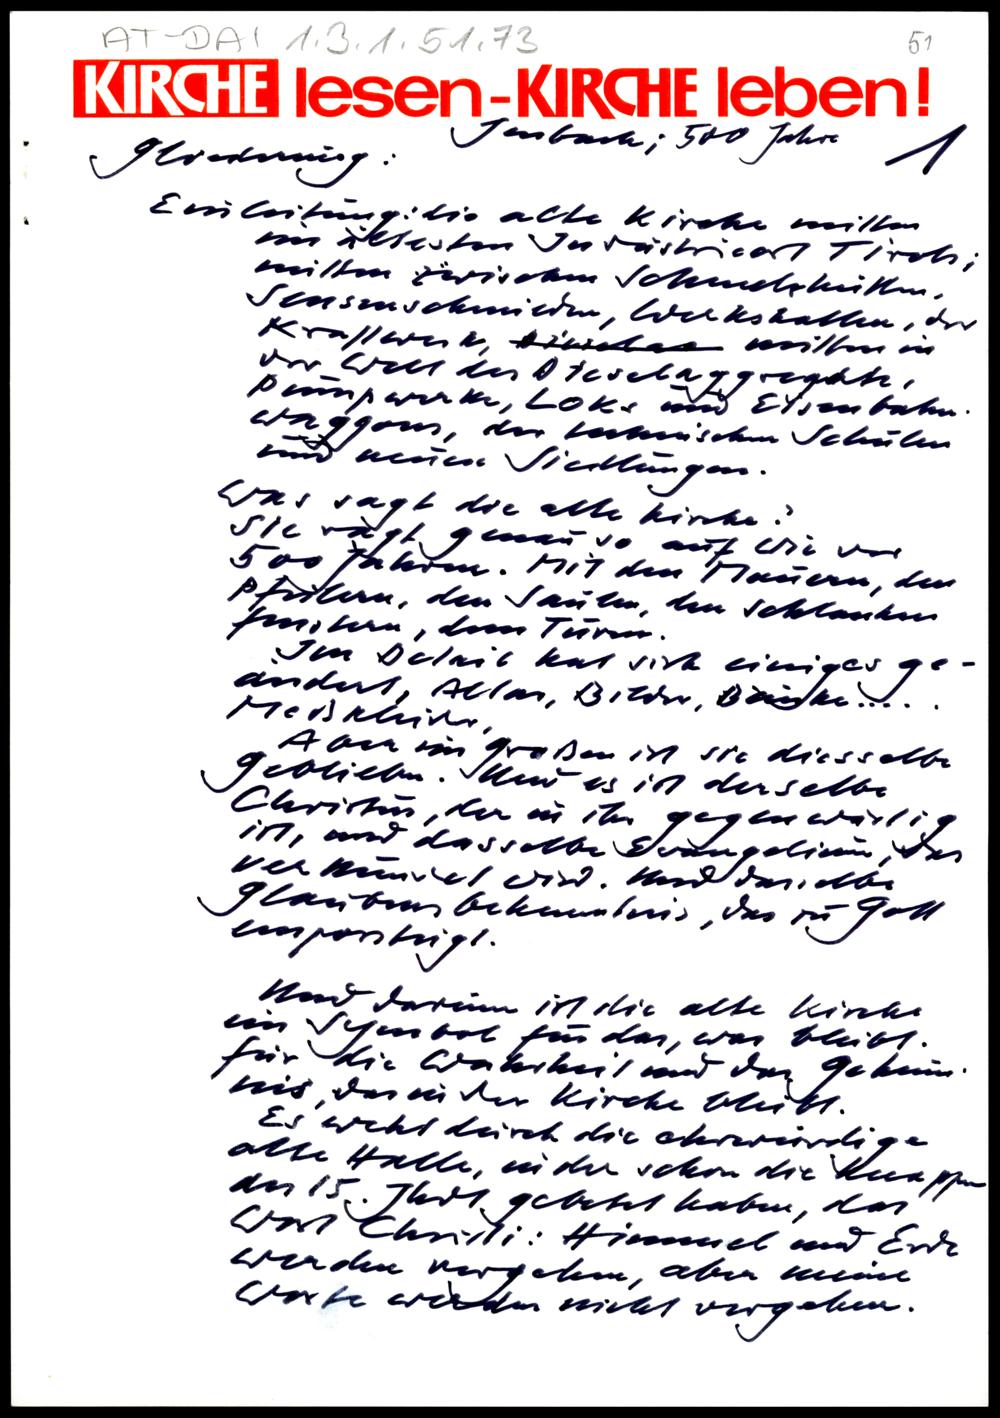 AT-DAI 1.3.1.51.73
51
KIRCHE lesen-KIRCHE leben!
Jenbach; 500 Jahre
1
Gliederung:
Einleitung: die alte Kirche mitten
im ältesten Industrieort Tirols;
mitten zwischen Schmelzhütten,
Sensenschmieden, Werkshallen, der
Kraftwerke, mitten in
der Welt der Dieselaggregate,
Pumpwerke, Loks und Eisenbahn-
waggons, der technischen Schulen
und neuen Siedlungen.
Was sagt die alte Kirche?
Sie ragt genau so auf wie vor
500 Jahren. Mit den Mauern, den
Pfeilern, den Säulen, den schlanken
Fenstern, dem Turm.
Im Detail hat sich einiges ge-
ändert, Altar, Bilder, Bänke.....
Meßkleider,
Aber im großen ist sie diesselbe
geblieben. Und es ist derselbe
Christus, der in ihr gegenwärtig
ist, und dasselbe Evangelium, das
verkündet wird. Und dasselbe
Glaubensbekenntnis, das zu Gott
emporsteigt.
Und darum ist die alte Kirche
ein Symbol für das, was bleibt.
für die Wahrheit und das Geheim-
nis, das in der Kirche bleibt.
Es weht durch die ehrwürdige
alte Halle, in der schon die Knappen
des 15. Jhdt gebetet haben, das
Wort Christi: Himmel und Erde
werden vergehen, aber meine
Worte werden nicht vergehen.